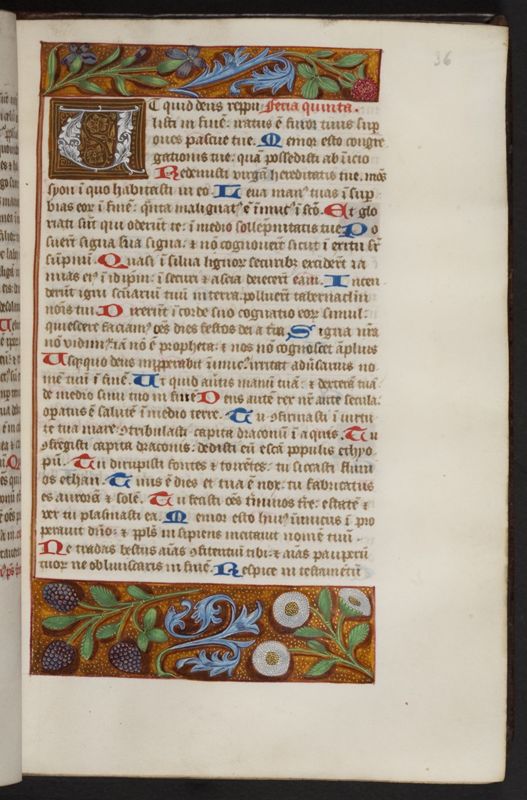 36
Ut quid deus reppu⸝ Feria quinta.
listi in finē: iratus ē furor tuus sup
oues pascue tue. Memor esto congre
gationis tue: quā possedisti ab īicio
Redemisti virgā hereditatis tue. mōs
syon ī quo habitasti in eo. Leua manꝰ tuas ī sup
bias eoꝝ ī finē: q̄nta malignatꝰ ē īimicꝰ ī scō. Et glo
riati sūt qui oderūt te: ī medio sollēpnitatis tue. Po
suerūt signa sua signa: ⁊ nō cognouerūt sicut ī exitu
sup sūmū. Quasi ī silua lignoꝝ securibꝫ exciderūt ia
nuas eiꝰ ī idipm̄: ī securi ⁊ ascia deiecerūt eam. Incen
derūt igni sctuariū tuū in terra polluerūt tabernaclm̄
noīs tui. Dixerūt ī corde suo cognatio eoꝝ simul:
quiescere faciamꝰ oēs dies festos dei a tra. Signa nr̄a
nō vidimꝰ iā nō ē propheta: ⁊ nos nō cognoscet āplius
Usqꝫquo deus īproperabit īimicꝰ: irritat aduersarius no
mē tuū ī finē. Ut quid auertis manū tuā: ⁊ dexterā tuā
de medio sinu tuo in finē. Deus autē rex nr̄ ante secula:
opatus ē salutē ī medio terre. Tu ꝯfirmasti ī virtu
te tua mare: ꝯtribulasti capita draconū ī aquis. Tu
ꝯfregisti capita draconis: dedisti eū escā populis ethyo
pū. Tu dirupisti fontes ⁊ torrētes: tu siccasti fluui
os ethan. Tuus ē dies et tua ē nox: tu fabricatus
es aurorā ⁊ solē. Tu fecisti oēs tīmos tr̄e: estatē ⁊
ver tu plasmasti ea. Memor esto huiꝰ īimicus ī pro
perauit dn̄o: ⁊ ppl̄s insipiens incitauit nomē tuū.
Ne tradas bestiis aīas ꝯfitentiū tibi: ⁊ aīas pauperū
tuoꝝ ne obliuiscaris in finē. Respice in testamētū